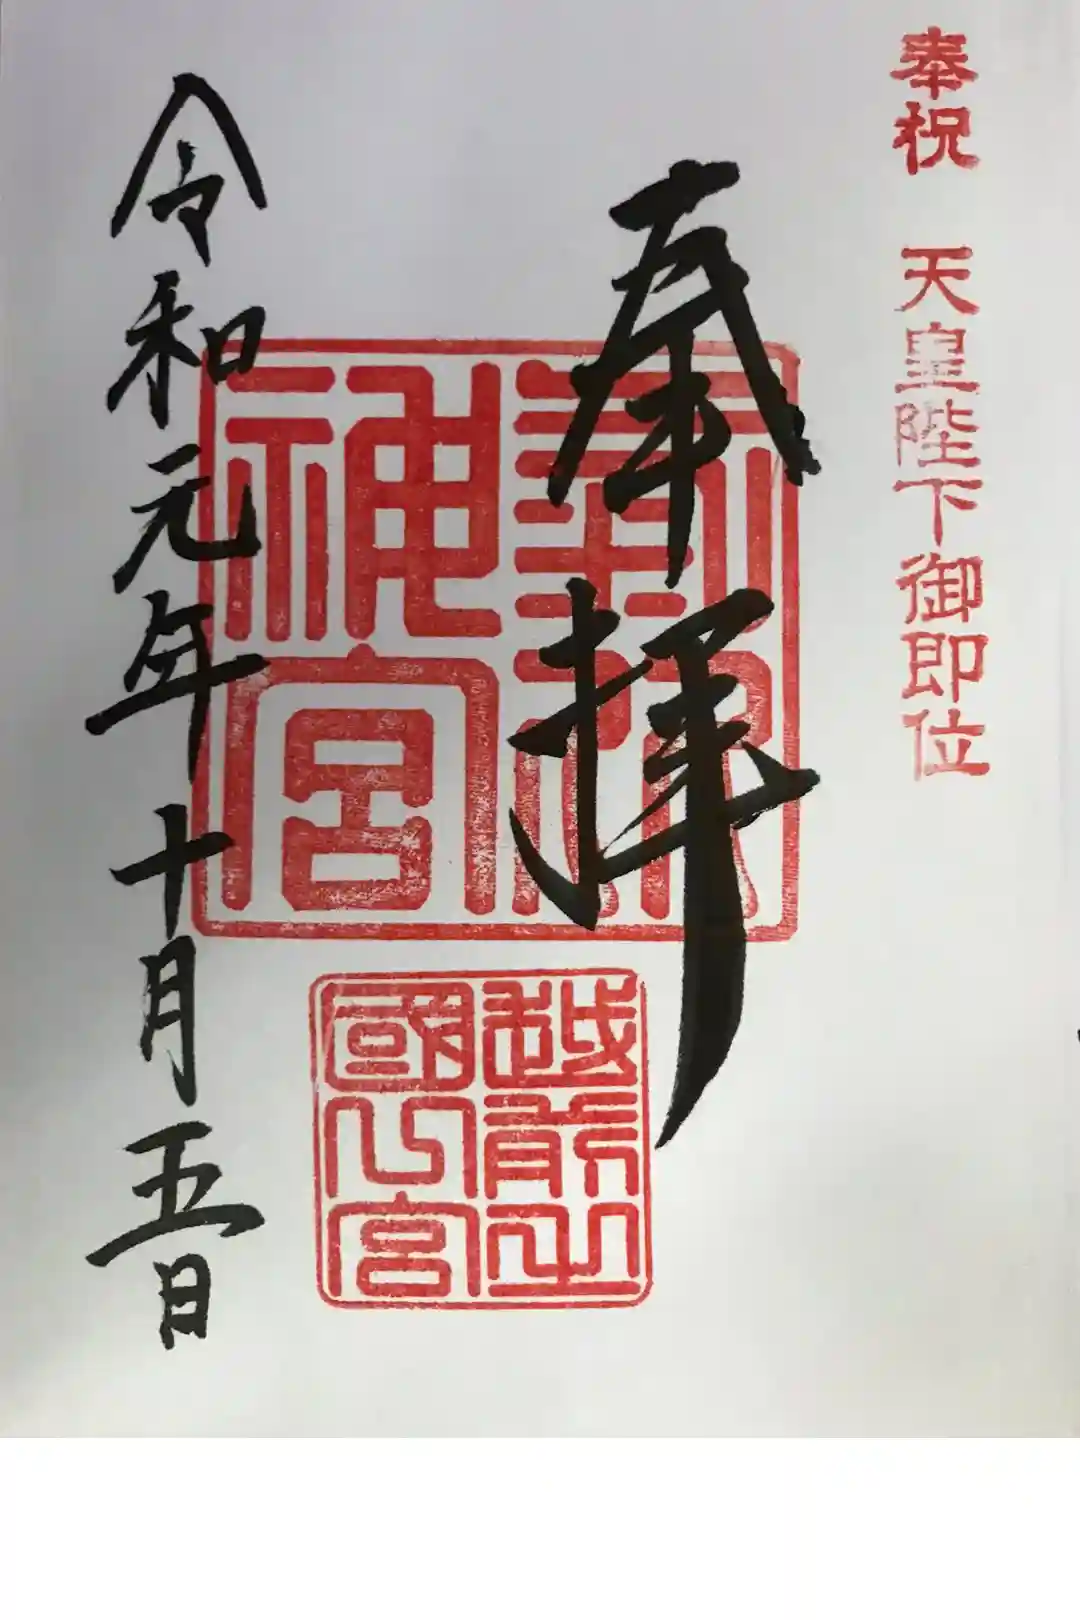 奉祝 天皇陛下御即位
奉拝
氣比
神宮
越前之
國一宮
令和元年十月五日